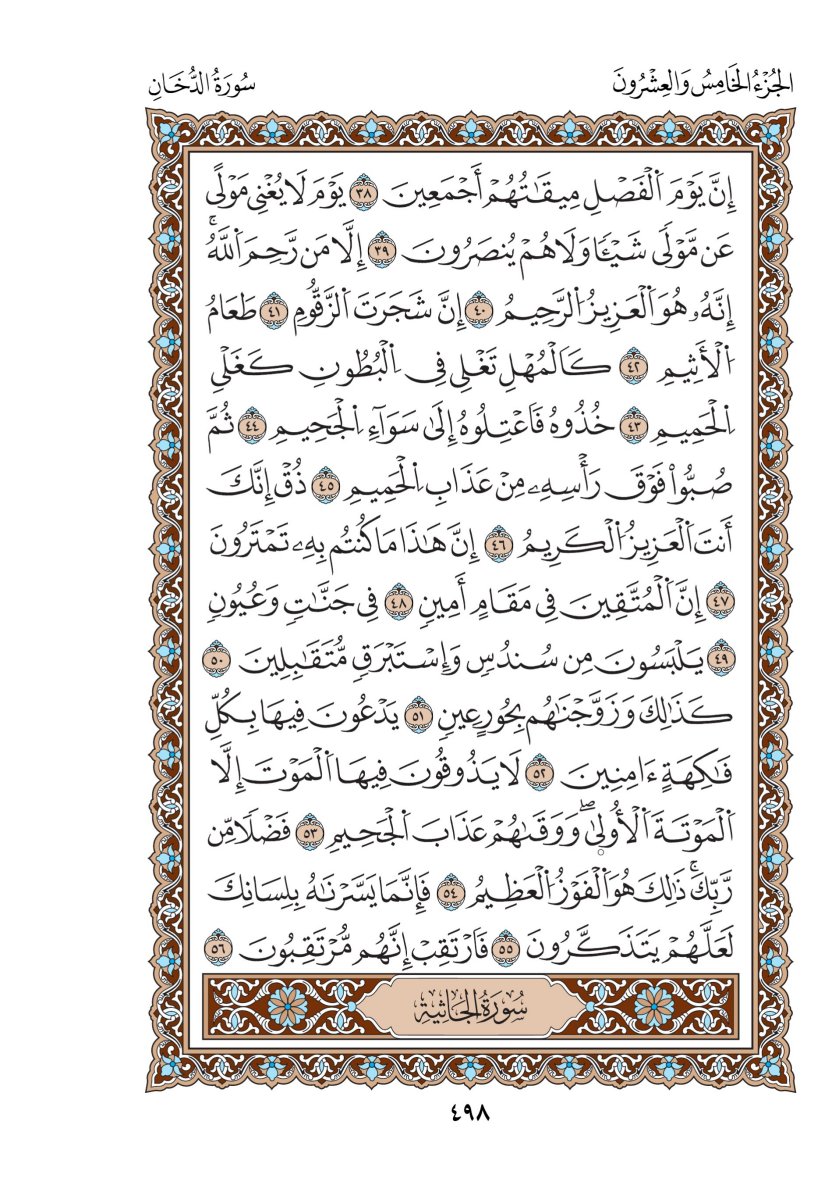 الجُزْءُ الخَامِسُ وَالعِشْرُونَ
سُورَةُ الدُّخَانِ
إِنَّ يَوْمَ اَ۬لْفَصْلِ مِيقَٰتُهُمْ أَجْمَعِينَ ٣٨ يَوْمَ لَا يُغْنِي مَوْلًى
عَن مَّوْلٗى شَيْـٔٗا وَلَا هُمْ يُنصَرُونَ ٣٩ إِلَّا مَن رَّحِمَ اَ۬للَّهُۚ
إِنَّهُۥ هُوَ اَ۬لْعَزِيزُ اُ۬لرَّحِيمُ ٤٠ إِنَّ شَجَرَتَ اَ۬لزَّقُّومِ ٤١ طَعَامُ
اُ۬لْأَثِيمِ ٤٢ كَالْمُهْلِ تَغْلِي فِي اِ۬لْبُطُونِ كَغَلْيِ
اِ۬لْحَمِيمِ ٤٣ خُذُوهُ فَاعْتِلُوهُ إِلَىٰ سَوَآءِ اِ۬لْجَحِيمِ ٤٤ ثُمَّ
صُبُّواْ فَوْقَ رَأْسِهِۦ مِنْ عَذَابِ اِ۬لْحَمِيمِ ٤٥ ذُقْ إِنَّكَ
أَنتَ اَ۬لْعَزِيزُ اُ۬لْكَرِيمُ ٤٦ إِنَّ هَٰذَا مَا كُنتُم بِهِۦ تَمْتَرُونَ
٤٧ إِنَّ اَ۬لْمُتَّقِينَ فِي مَقَامٍ أَمِينٖ ٤٨ فِي جَنَّٰتٖ وَعُيُونٖ
٤٩ يَلْبَسُونَ مِن سُندُسٖ وَإِسْتَبْرَقٖ مُّتَقَٰبِلِينَ ٥٠
كَذَٰلِكَ وَزَوَّجْنَٰهُم بِحُورٍ عِينٖ ٥١ يَدْعُونَ فِيهَا بِكُلِّ
فَٰكِهَةٍ ءَامِنِينَ ٥٢ لَا يَذُوقُونَ فِيهَا اَ۬لْمَوْتَ إِلَّا
اَ۬لْمَوْتَةَ اَ۬لْأُولۭىٰۖ وَوَقَىٰهُمْ عَذَابَ اَ۬لْجَحِيمِ ٥٣ فَضْلٗا مِّن
رَّبِّكَۚ ذَٰلِكَ هُوَ اَ۬لْفَوْزُ اُ۬لْعَظِيمُ ٥٤ فَإِنَّمَا يَسَّرْنَٰهُ بِلِسَانِكَ
لَعَلَّهُمْ يَتَذَكَّرُونَ ٥٥ فَارْتَقِبْ إِنَّهُم مُّرْتَقِبُونَ ٥٦
سُورَةُ الجَاثِيَةِ
٤٩٨